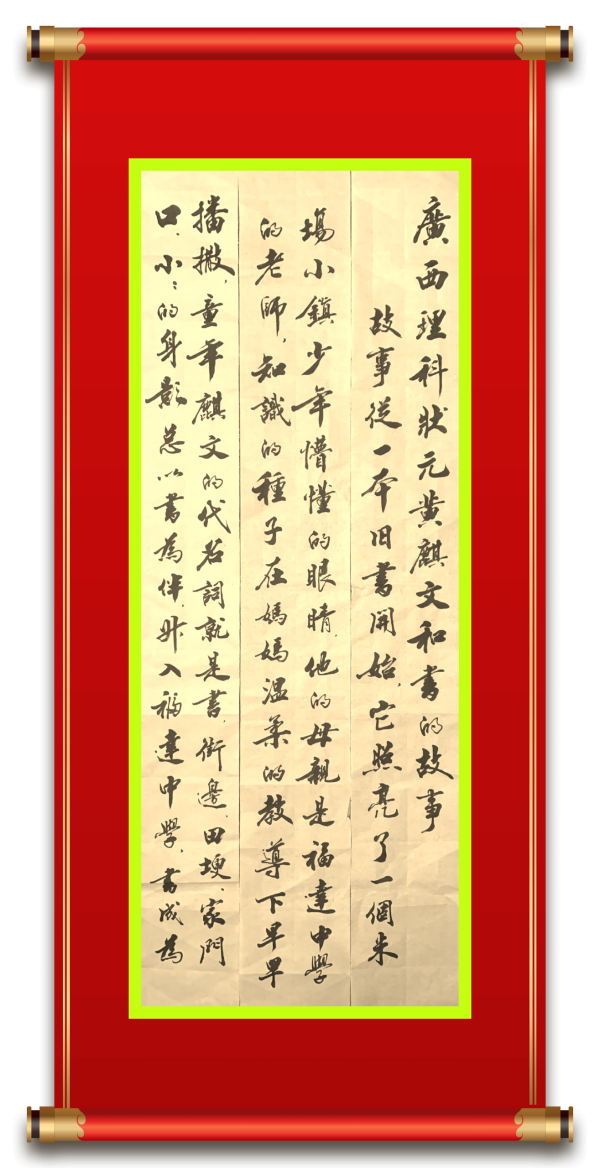 廣西理科狀元黃麒文和書的故事
故事從一本旧書開始，它照亮了一個朱
場小鎮少年懵懂的眼睛，他的母親是福達中學
的老師，知識的種子在媽媽温柔的教導下早早
播撒，童年麒文的代名詞就是書，街邊、田埂、家門
口，小〻的身影总以書為伴，升入福達中學，書成為